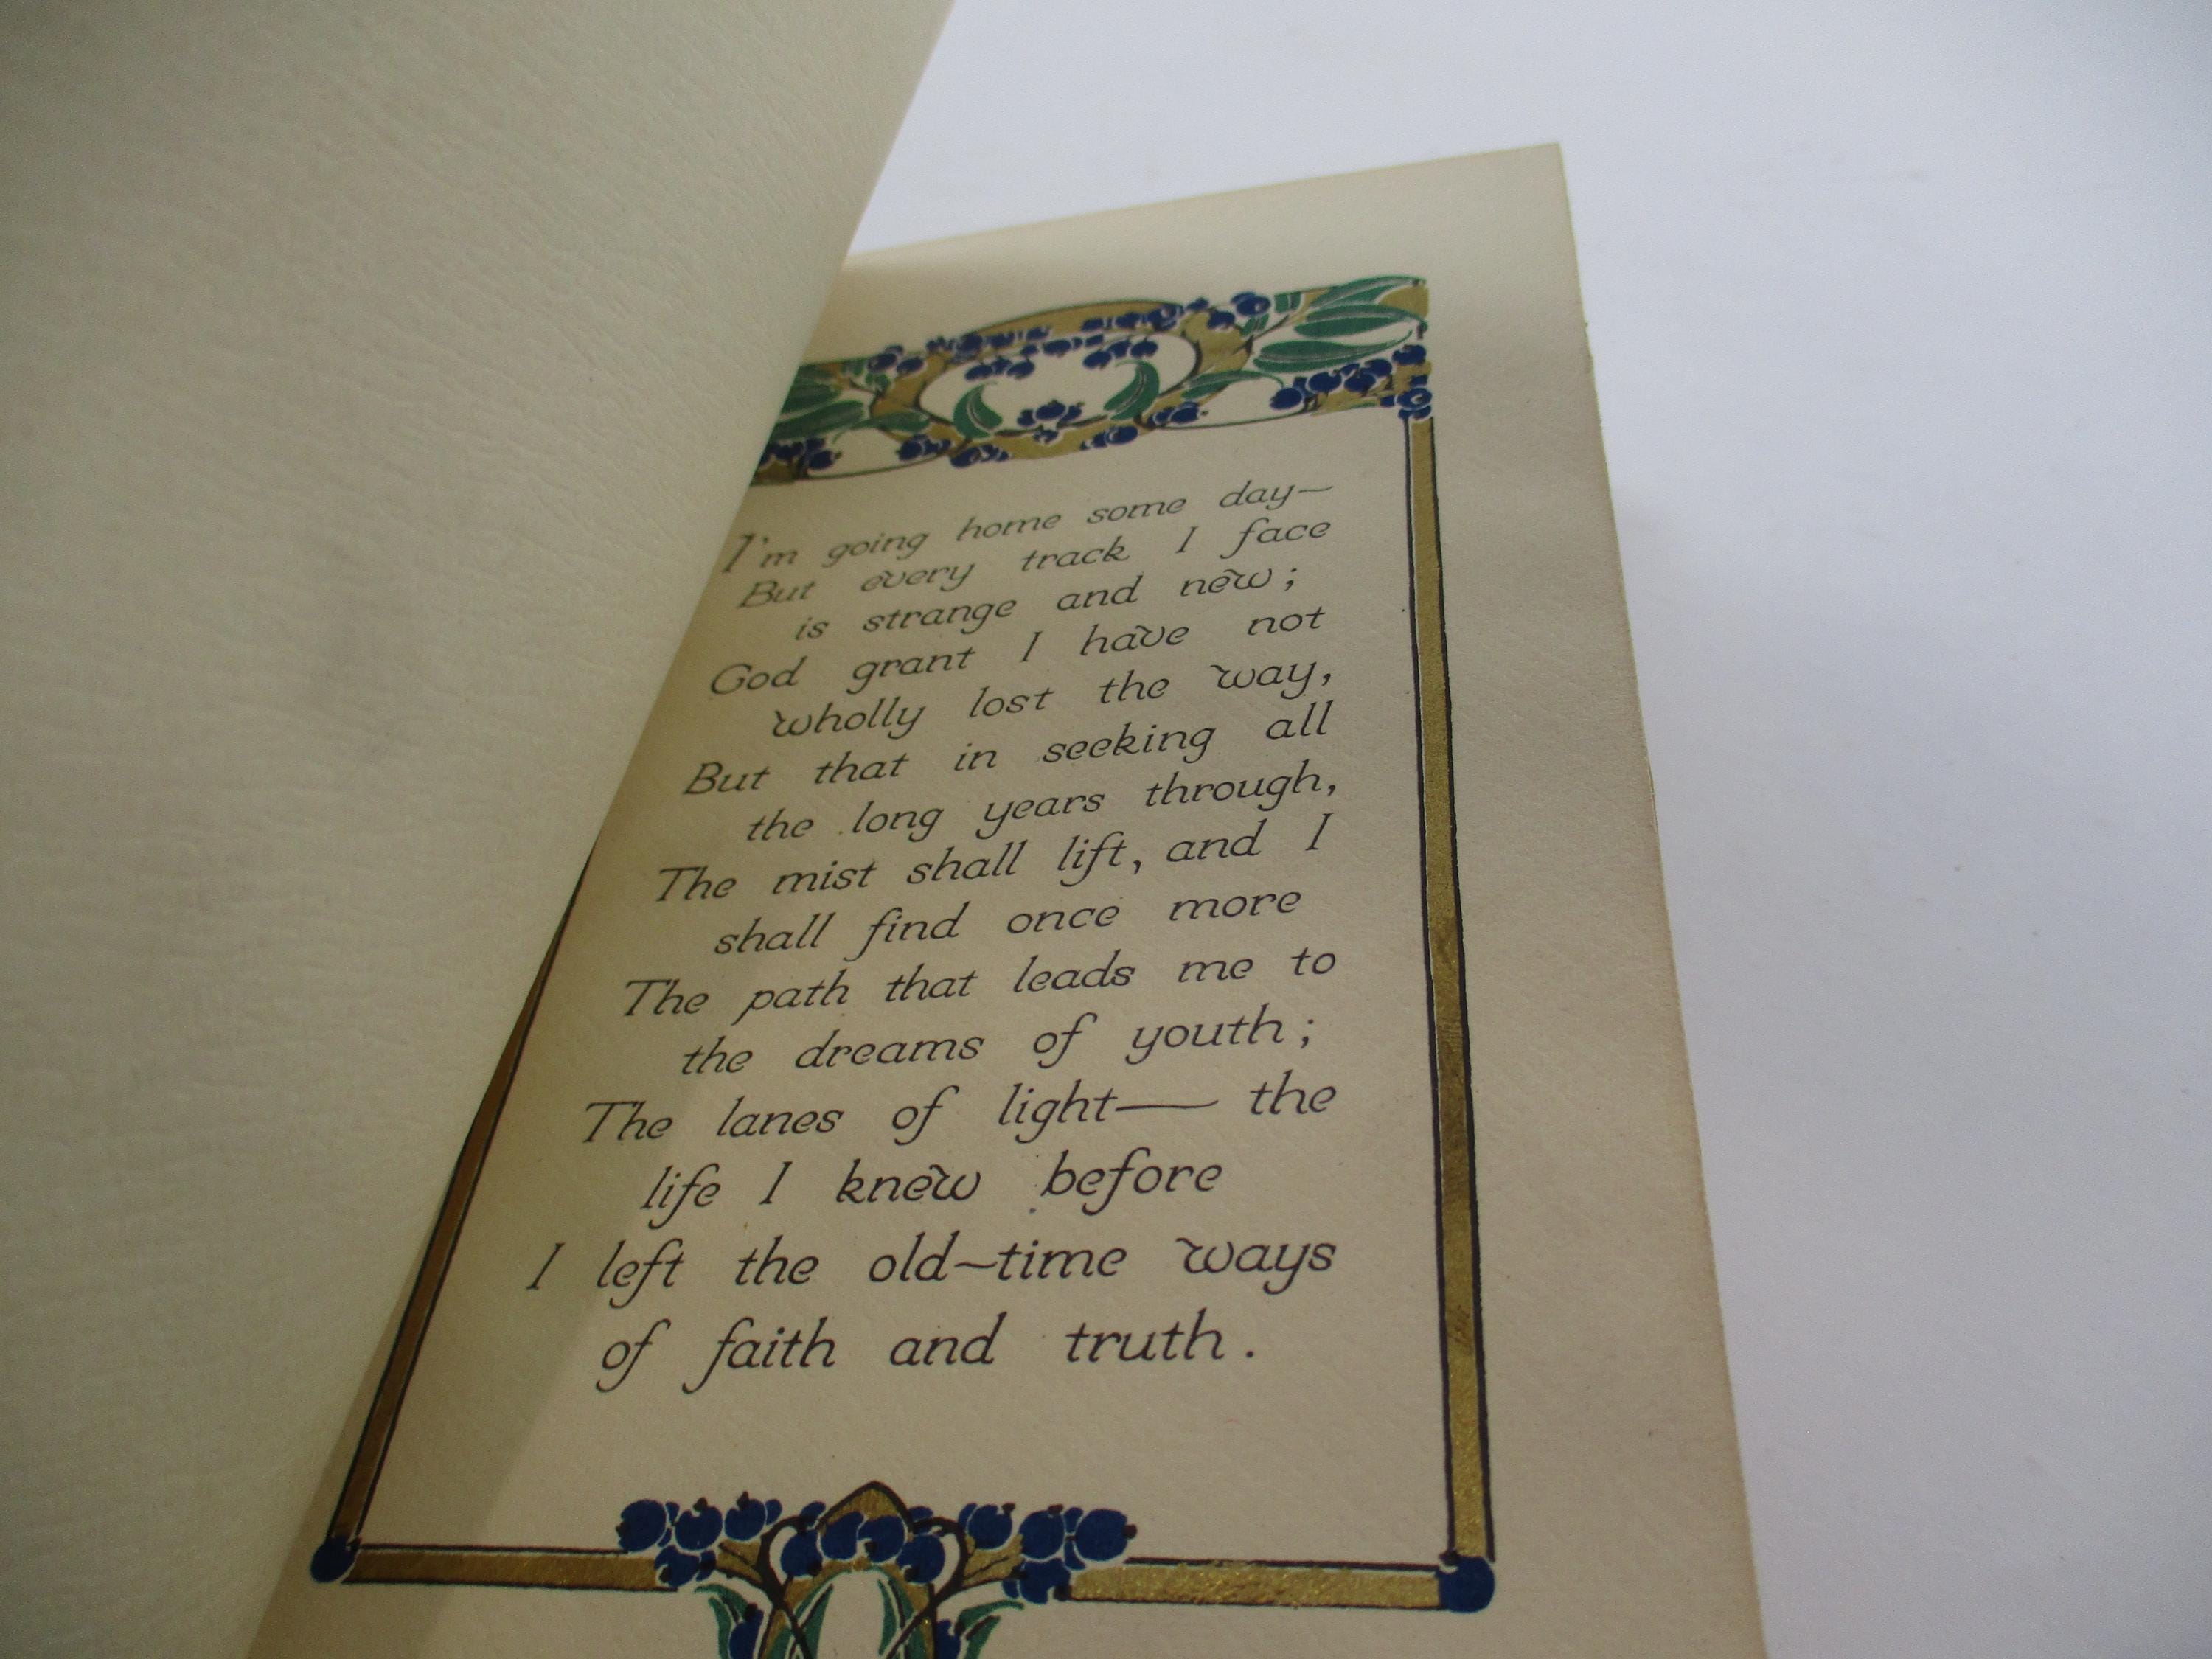 I'm going home some day—
But every track I face
is strange and new;
God grant I have not
wholly lost the way,
But that in seeking all
the long years through,
The mist shall lift, and I
shall find once more
The path that leads me to
the dreams of youth;
The lanes of light— the
life I knew before
I left the old-time ways
of faith and truth.